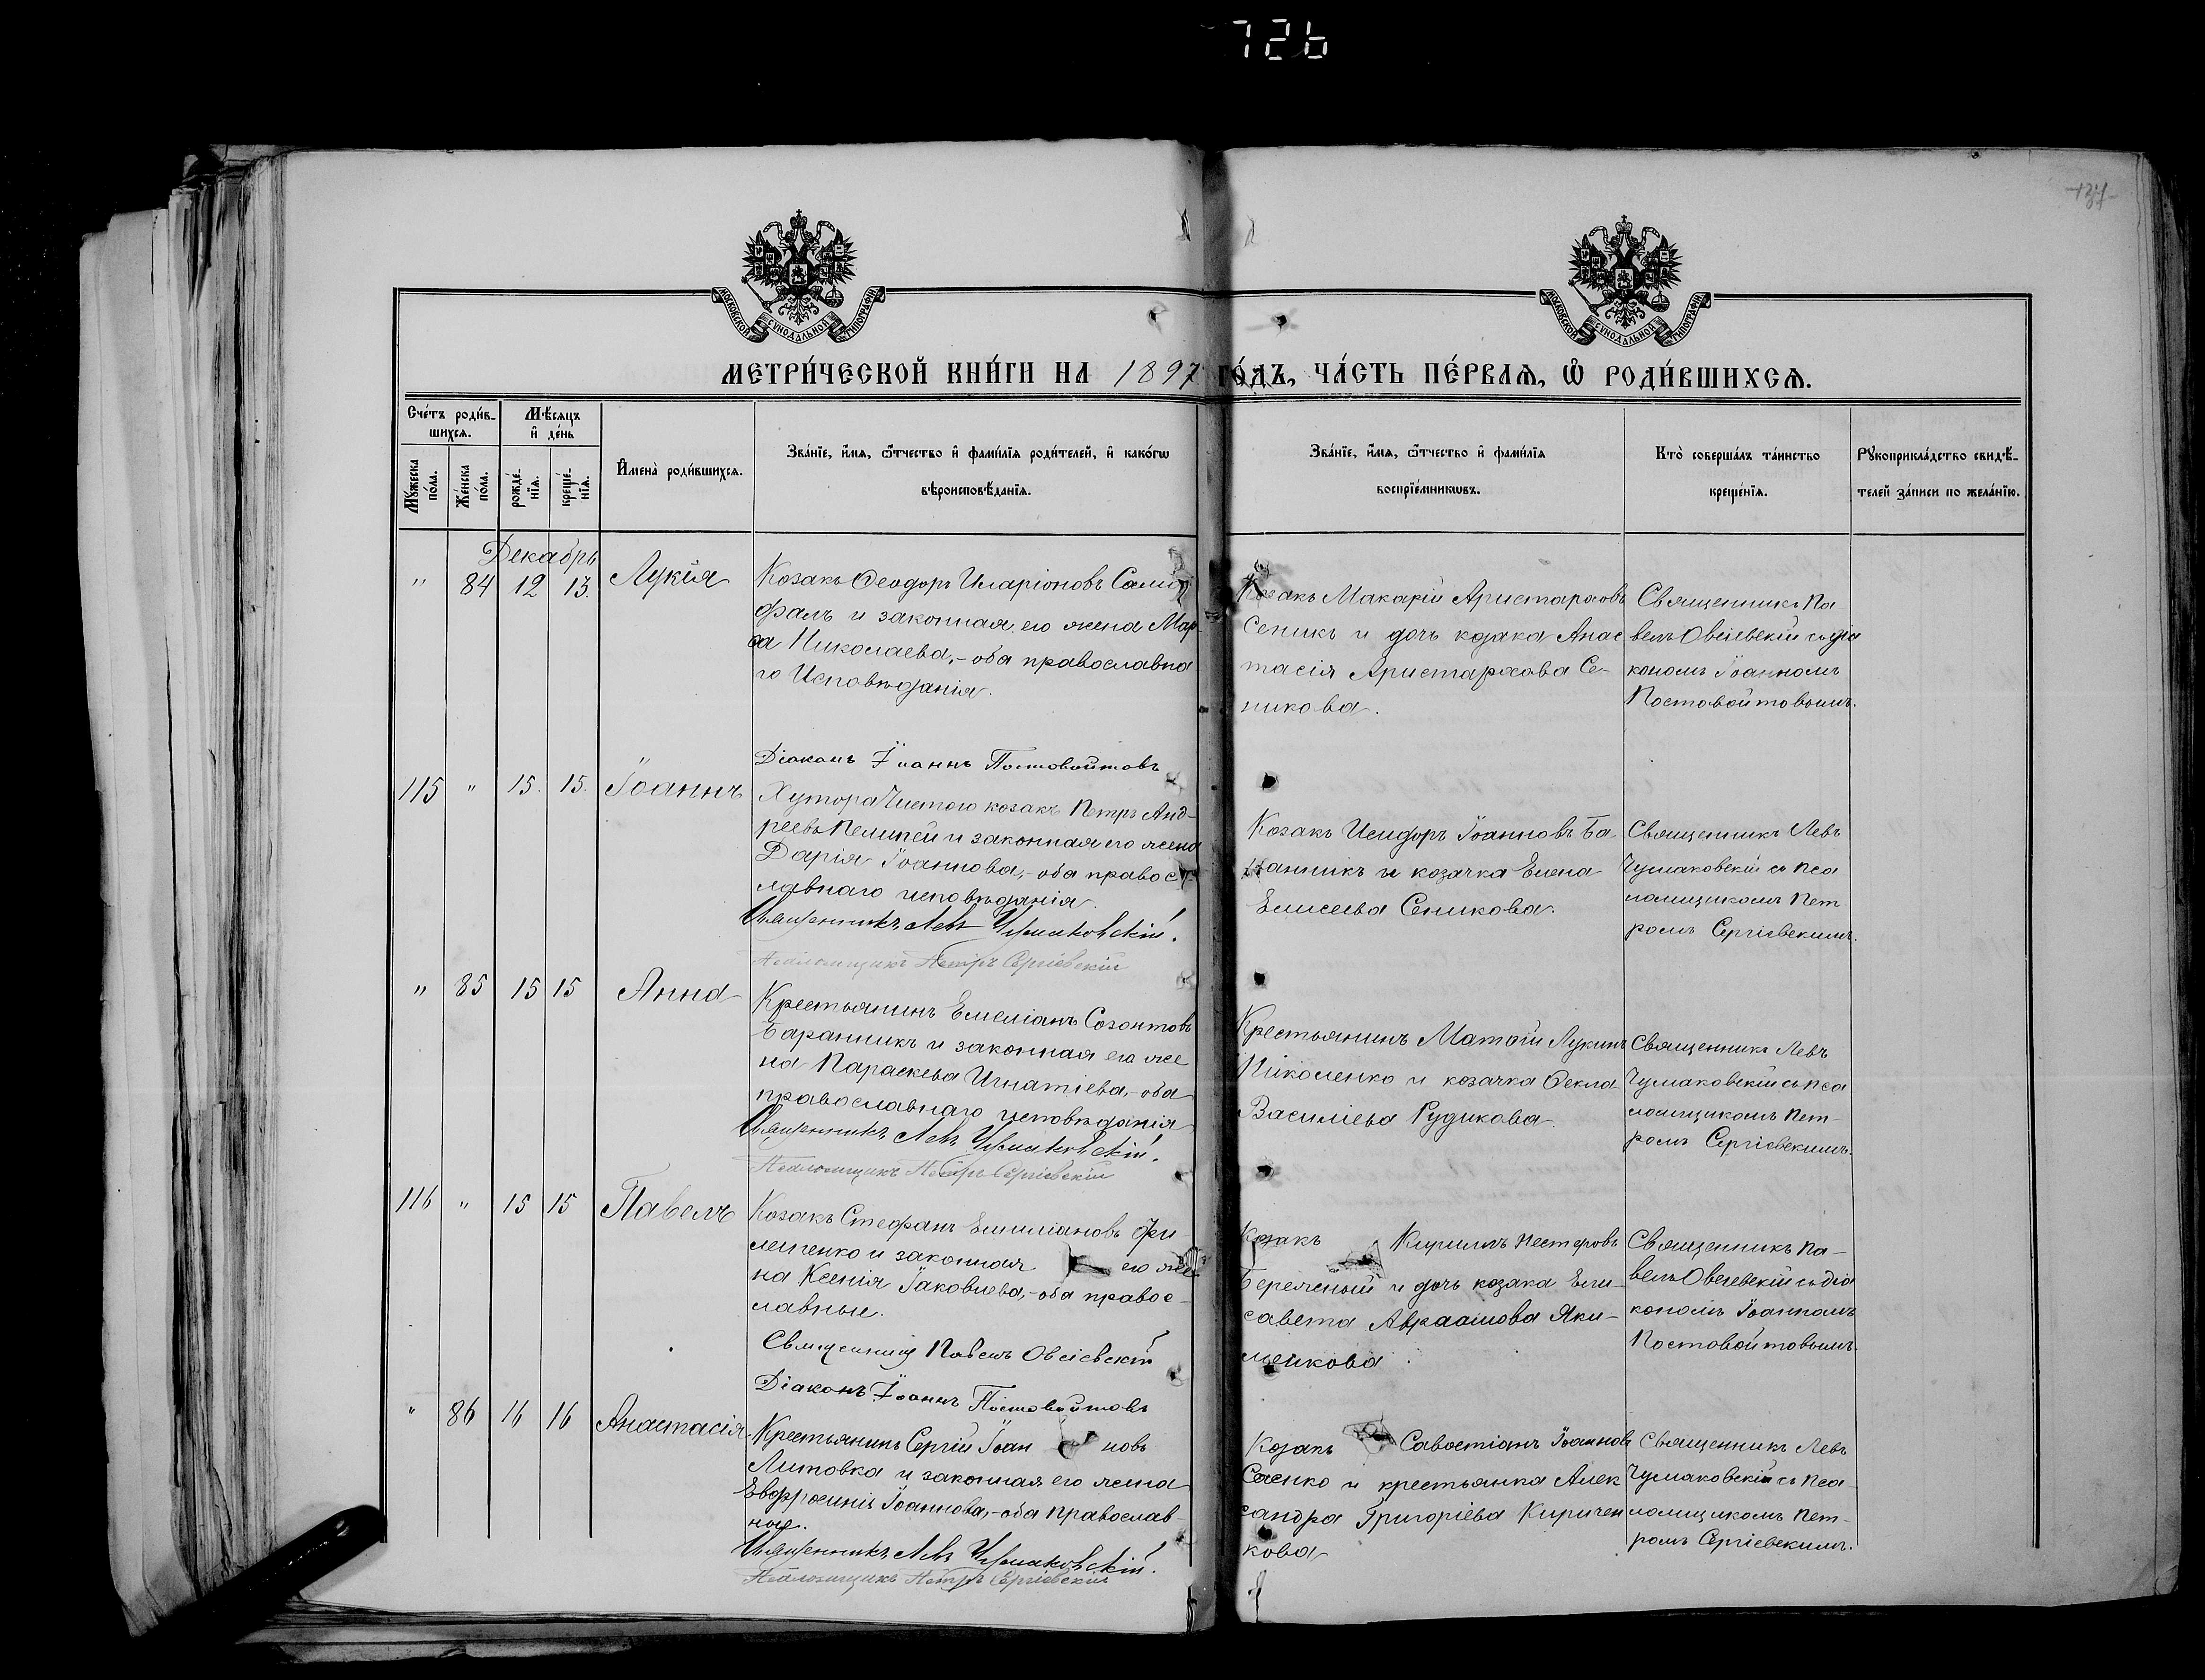 726
137
МОСКОВСКОЙ СѴНОДАЛЬНОЙ ТИПОГРАФІИ
МОСКОВСКОЙ СѴНОДАЛЬНОЙ ТИПОГРАФІИ
МЕТРИ́ЧЕСКОЙ КНИ́ГИ НА 1897 ГО́ДЪ, ЧА́СТЬ ПЕ́РВАѦ, Ѽ РОДИ́ВШИХСѦ.
Сче́тъ роди́в-
шихсѧ.
Мѣ́сѧцъ
и҆ де́нь
Мꙋ́жеска
по́ла.
Же́нска
по́ла.
рожде́-
нїѧ.
креще́-
нїѧ.
И҆мена̀ роди́вшихсѧ.
Зва́нїе, и҆́мѧ, ѻ҆́тчество и҆ фами́лїѧ роди́телей, и҆ како́гѡ
вѣроисповѣ́данїѧ.
Зва́нїе, и҆́мѧ, ѻ҆́тчество и҆ фами́лїѧ
воспрїе́мникѡвъ.
Кто̀ соверша́лъ та́инство
креще́нїѧ.
Рꙋкоприкла́дство свидѣ́-
телей за́писи по жела́нїю.
Декабрь
" 84 12 13. Лукія
Козакъ Ѳеодоръ Иларіоновъ
фалъ и законная его жена Мар-
ѳа Николаева,- оба православна
го Исповѣданія.
Діаконъ Іоаннъ Постовойтовъ
Козакъ Макарій Аристарховъ
Сеникъ и дочь козака Анас
тасія Аристархова Се-
никова.
Священникъ Па
велъ Овсіевскій съ діа
кономъ Іоанномъ
Постовойтовымъ.
115 " 15. 15. Іоаннъ
Хутора Чистого козакъ Петръ Анд-
реевъ Пелипей и законная его жена
Дарія Іоаннова,- оба правос
лавнаго исповѣданія.
Священникъ Левъ Чумаковскій.
Псаломщикъ Петръ Сергіевскій
Козакъ Исидоръ Іоанновъ Ба-
ранникъ и козачка Елена
Елисеева Сеникова.
Священникъ Левъ
Чумаковскій съ пса
ломщикомъ Пет
ромъ Сергіевскимъ.
" 85 15 15 Анна
Крестьянинъ Емеліанъ Созонтовъ
Баранникъ и законная его же
на Параскева Игнатіева,- оба
православнаго исповѣданія
Священникъ Левъ Чумаковскій.
Псаломщикъ Петръ Сергіевскій
Крестьянинъ Матѳій Лукинъ
Николенко и козачка Ѳекла
Василіева Рудикова.
Священникъ Левъ
Чумаковскій съ пса
ломщикомъ Пет-
ромъ Сергіевскимъ.
116 " 15 15 Павелъ
Козакъ Стефанъ Емиліановъ Фи
липенко и законная его же
на Ксенія Іаковлева,- оба правос-
лавные.
Священникъ Павелъ Овсіевскій
Діаконъ Іоаннъ Постовойтовъ
Козакъ Кириллъ Нестеровъ
и дочь козака Ели-
савета Авраамова Яки-
менкова
Священникъ Па-
велъ Овсіевскій съ діа
кономъ Іоанномъ
Постовойтовымъ.
" 86 16 16 Анастасія
Крестьянинъ Сергій Іоан новъ
Литовка и законная его жена
Евфросинія Іоаннова,- оба православ-
ные.
Священникъ Левъ Чумаковскій.
Псаломщикъ Петръ Сергіевскій
Козакъ Савостіанъ Іоанновъ
Саенко и крестьянка Алек
сандра Григоріева Киричен
кова
Священникъ Левъ
Чумаковскій съ пса-
ломщикомъ Пет-
ромъ Сергіевскимъ.